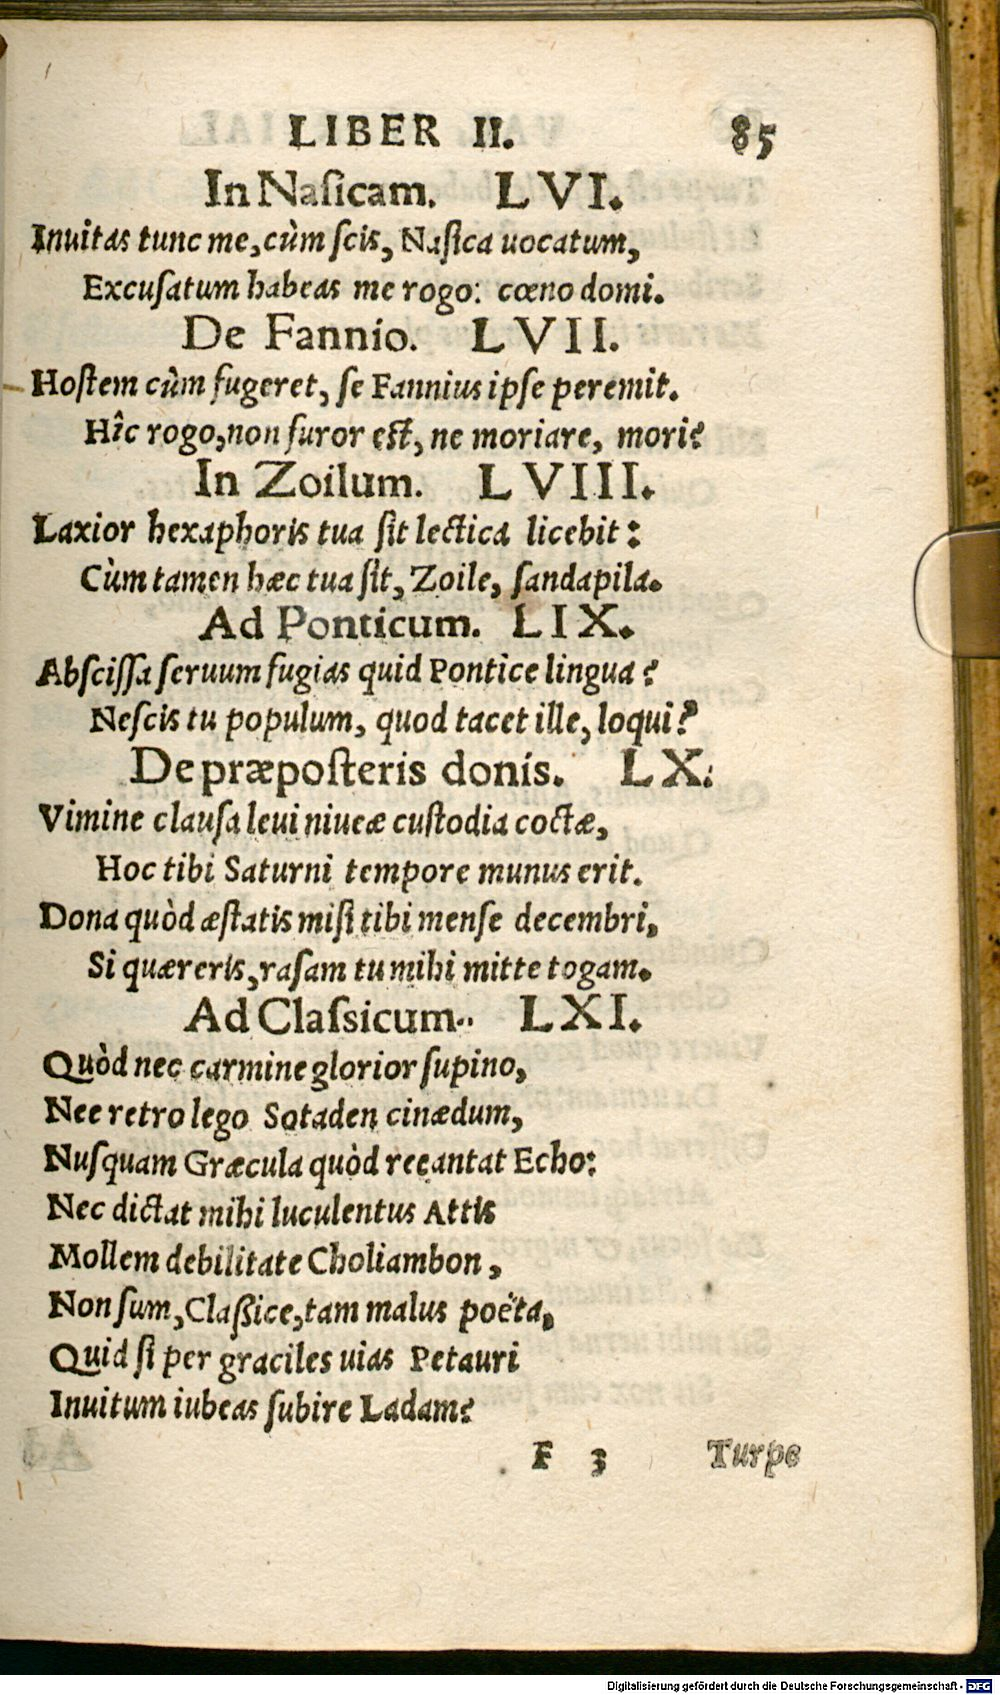 LIBER II. 85
In Nasicam. LVI.
Inuitas tunc me, cùm scis, Nasica uocatum,
Excusatum habeas me rogo: cœno domi.
De Fannio. LVII.
Hostem cùm fugeret, se Fannius ipse peremit.
Hîc rogo, non furor est, ne moriare, mori?
In Zoilum. LVIII.
Laxior hexaphoris tua sit lectica licebit:
Cùm tamen hæc tua sit, Zoile, sandapila.
Ad Ponticum. LIX.
Abscissa seruum fugias quid Pontice lingua?
Nescis tu populum, quod tacet ille, loqui?
De præposteris donis. LX.
Vimine clausa leui niueæ custodia coctæ,
Hoc tibi Saturni tempore munus erit.
Dona quòd æstatis misi tibi mense decembri,
Si quæreris, rasam tu mihi mitte togam.
Ad Classicum. LXI.
Quòd nec carmine glorior supino,
Nee retro lego Sotaden cinædum,
Nusquam Græcula quòd recantat Echo:
Nec dictat mihi luculentus Attis
Mollem debilitate Choliambon,
Non sum, Classice, tam malus poëta,
Quid si per graciles uias Petauri
Inuitum iubeas subire Ladam?
F 3 Turpe
Digitalisierung gefördert durch die Deutsche Forschungsgemeinschaft - DFG